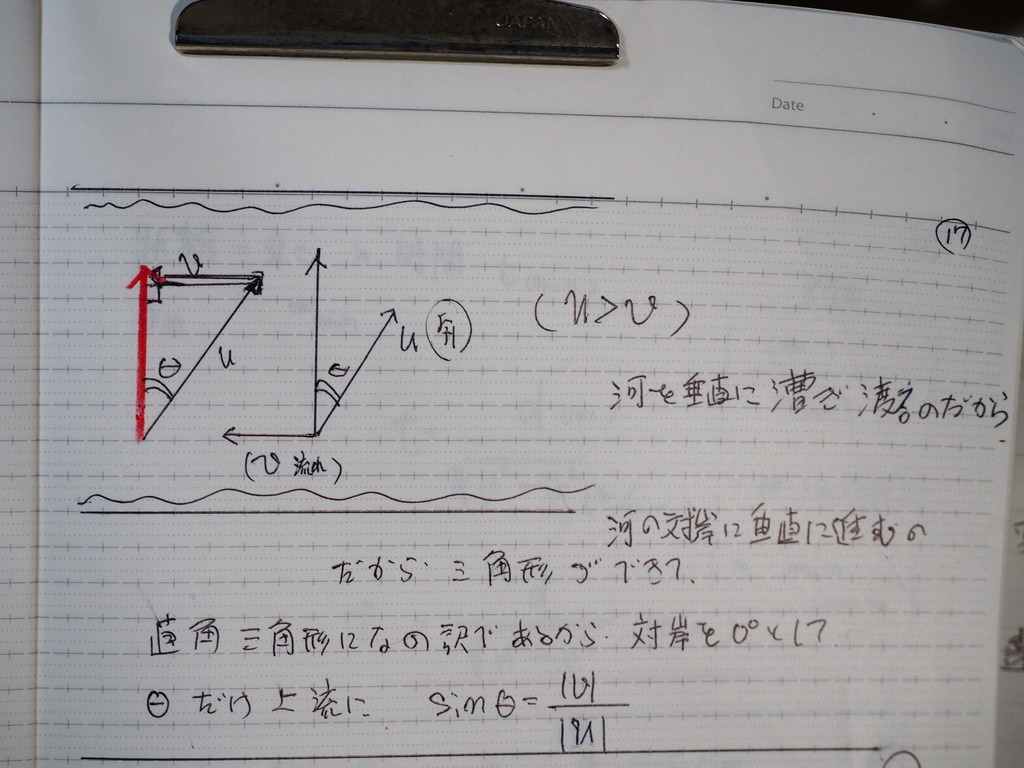 JAPAN
Date
17
v
θ
u
θ
u
(u>v)
(v 流れ)
河を垂直に漕ぎ渡るのだから
河の対岸に垂直に進むの
だから三角形ができて、
直角三角形になの訳であるから、対岸を0°として
θだけ上流に sinθ=|v|/|u|